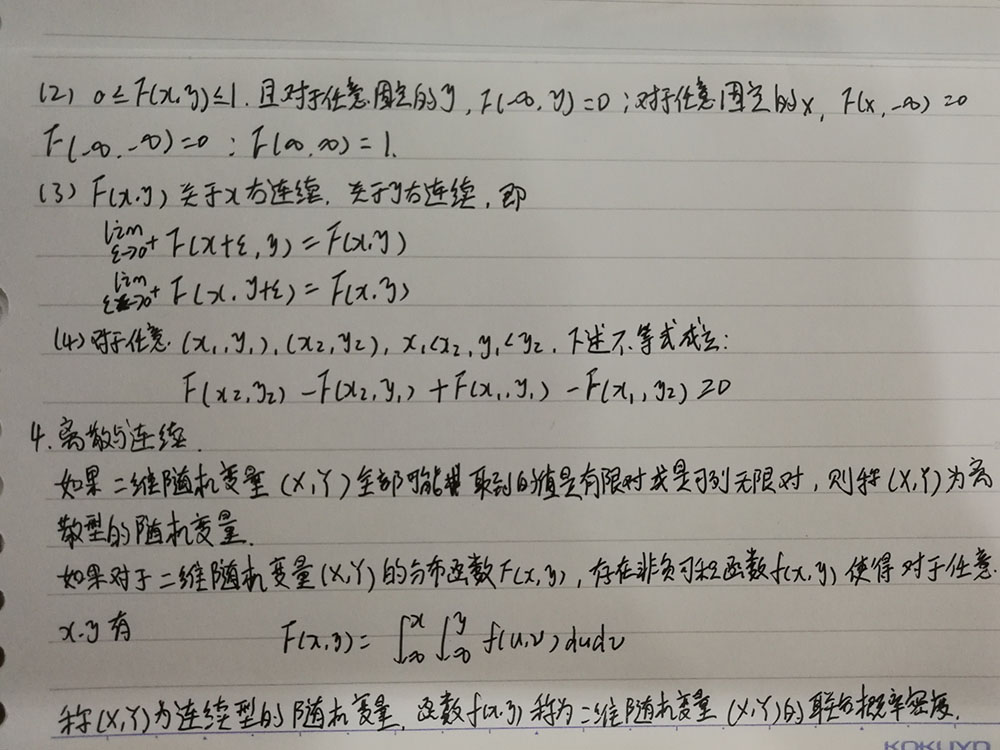 (2) 0≤F(x,y)≤1. 且对于任意固定的y, F(-∞,y)=0;对于任意固定的x, F(x,-∞)=0
F(-∞,-∞)=0;F(∞,∞)=1.
(3) F(x,y)关于x右连续,关于y右连续,即
lim ε→0⁺ F(x+ε,y)=F(x,y)
lim ε→0⁺ F(x,y+ε)=F(x,y)
(4)对于任意(x₁,y₁),(x₂,y₂), x₁<x₂,y₁<y₂,下述不等式成立:
F(x₂,y₂)-F(x₂,y₁)+F(x₁,y₁)-F(x₁,y₂)≥0
4.离散与连续.
如果二维随机变量(X,Y)全部可能取到的值是有限对或是可列无限对,则称(X,Y)为离
散型的随机变量.
如果对于二维随机变量(X,Y)的分布函数F(x,y),存在非负可积函数f(x,y)使得对于任意
x.y有 F(x,y)=∫_{-∞}^{x}∫_{-∞}^{y}f(u,v)dudv
称(X,Y)为连续型的随机变量,函数f(x,y)称为二维随机变量(X,Y)的联合概率密度.
KOKUYO